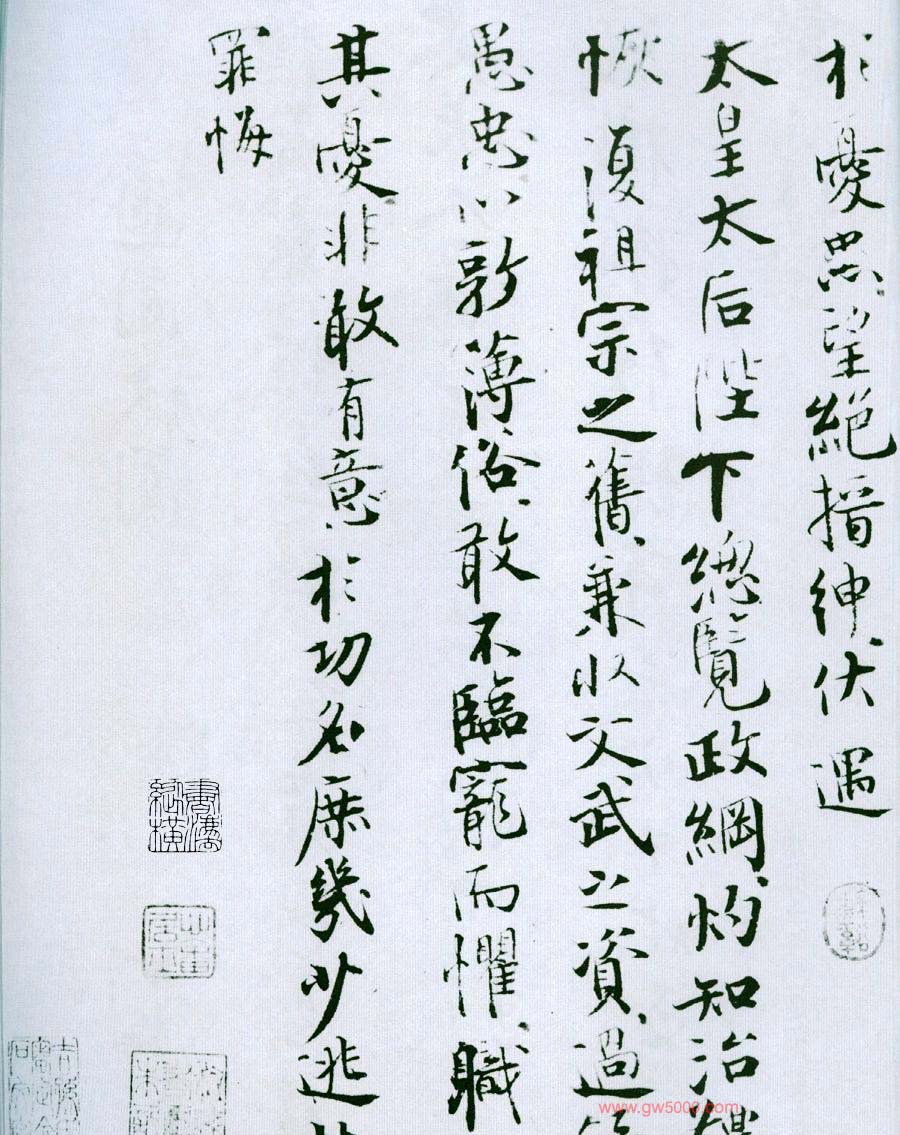 於憂思望絕搢紳伏遇
太皇太后陛下總覽政綱灼知治體
恢復祖宗之舊兼收文武之資過
愚忠以敦薄俗敢不臨寵而懼職
其憂非敢有意於功名庶幾少逃
罪悔
www.gw5000.com